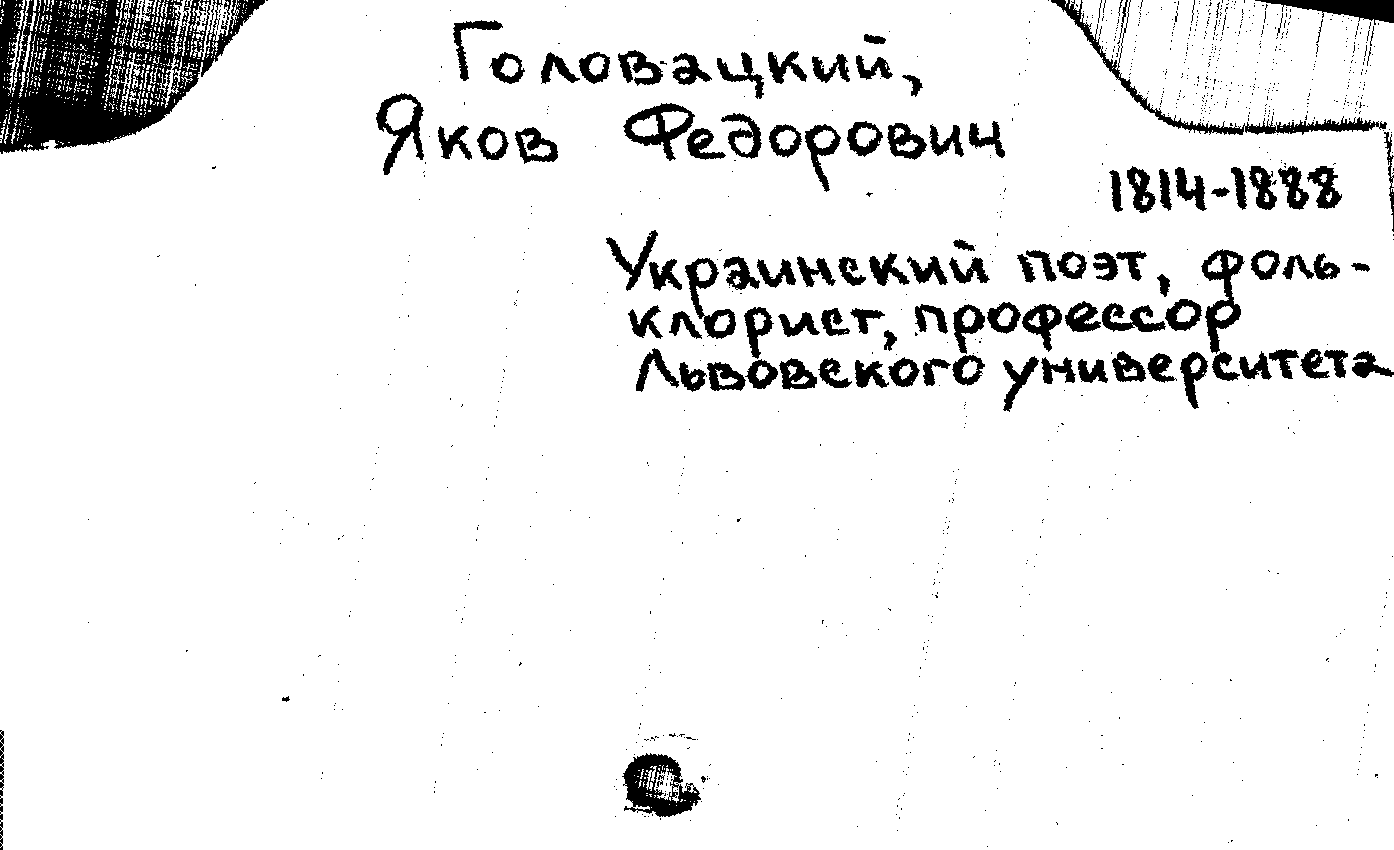 Головацкий,
Яков Федорович
1814-1888
Украинский поэт, фоль-
клорист, профессор
Львовского университета